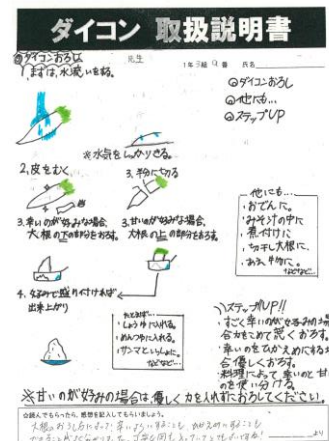 ダイコン 取扱説明書
先生
1年 9番 氏名
ダイコンおろし
まずは、水洗いをする。
ダイコンおろし
他にも…
ステップUP
※水気をしっかりきる。
2,皮をむく
3,半分に切る
3,辛いのが好みな場合、
大根の下の部分をおろす。
3,甘いのが好みな場合、
大根の上の部分をおろす。
他にも…
・おでんに。
・みそ汁の中に
・煮付けに
・切干し大根に。
などなど…
4,好みで盛り付ければ
出来上がり
たとえば…
・しょうゆに入れる。
・めんつゆに入れる。
・サンマといっしょに。
などなど…
ステップUP!!
・すごく辛いのが好みの場
合力をこめて荒くおろす。
・辛いのをひかえめにする場
合優しくおろす。
・料理によって辛いのと甘い
のを使い分ける。
※甘いのが好みの場合は優しく力を入れずにおろしてください。
☆読んでもらったら、感想を記入してもらいましょう。
より